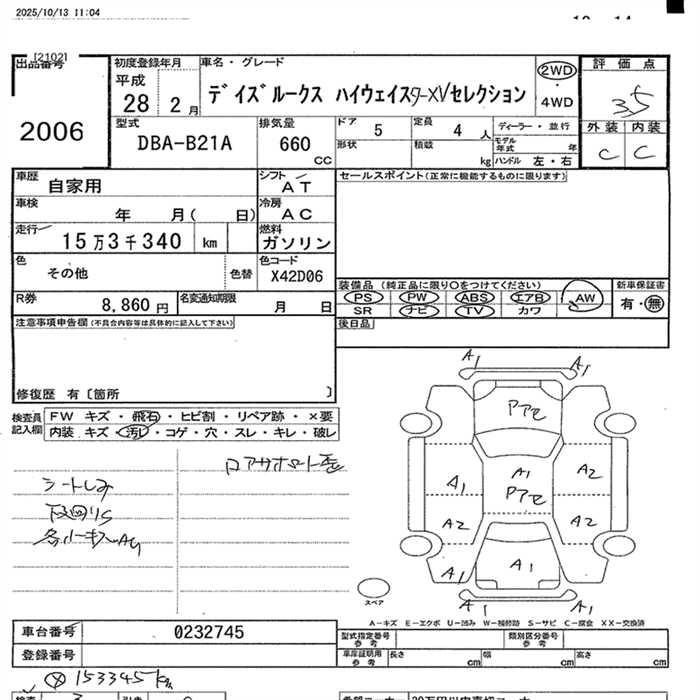 2025/10/13 11:04
[2102]
出品番号 初度登録年月 車名・グレード 評価点
平成
28 2月 デイズルークス ハイウェイスターXVセレクション 2WD・4WD 3.5
2006
型式 排気量 ドア 5 定員 4人 ディーラー・並行 外装 内装
DBA-B21A 660 CC 形状 積数 kg モデル年式 年 C C
ハンドル 左・右
車歴 自家用 シフト AT セールスポイント(正常に機能するものに限ります)
車検 年 月( 日) 冷房 AC
走行 15万3千340 km 燃料 ガソリン
色 その他 色替 色コード X42D06
装備品(純正品に限り〇をつけてください) 新車保証書
R券 8,860円 名変通知期限 月 日 PS PW ABS エアB AW 有・無
SR ナビ TV カワ
注意事項申告欄(不具合内容等は具体的に記入して下さい) 後日品
修復歴 有〔箇所 〕
検査員記入欄 FW キズ・飛石・ヒビ割・リペア跡・×要
内装 キズ・汚れ・コゲ・穴・スレ・キレ・破レ
シートしみ
A1 A1
アアセ
A1 A1 A2
アアセ
A2 A2
A1 A1
A1 A1
スペア
A-キズ E-エクボ U-凹み W-補修跡 S-サビ C-腐食 XX-交換済
車台番号 0232745 型式指定番号 参考 類別区分番号 参考
登録番号 車庫証明用 参考 長さ cm 幅 cm 高さ cm
153345km